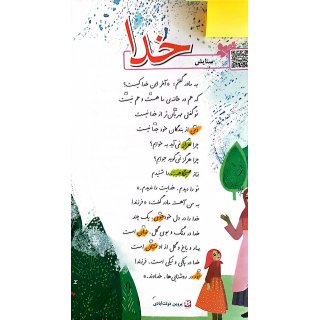 ستایش
خدا
به مادر گفتم: «آخر این خدا کیست؟
که هم در خانه‌ی ما هست و هم نیست
تو گفتی مهربان‌تر از خدا نیست
دمی از بندگان خود جدا نیست
چرا هرگز نمی‌آید به خوابم؟
چرا هرگز نمی‌گوید جوابم؟
نماز صبحگاهت را شنیدم
تو را دیدم، خدایت را ندیدم.»
به من آهسته مادر گفت: «فرزند!
خدا را در دل خود جوی، یک چند
خدا در رنگ و بوی گل، نهان است
بهار و باغ و گل از او نشان است
خدا در پاکی و نیکی است، فرزند!
بُوَد در روشنایی‌ها، خداوند.»
پروین دولت‌آبادی